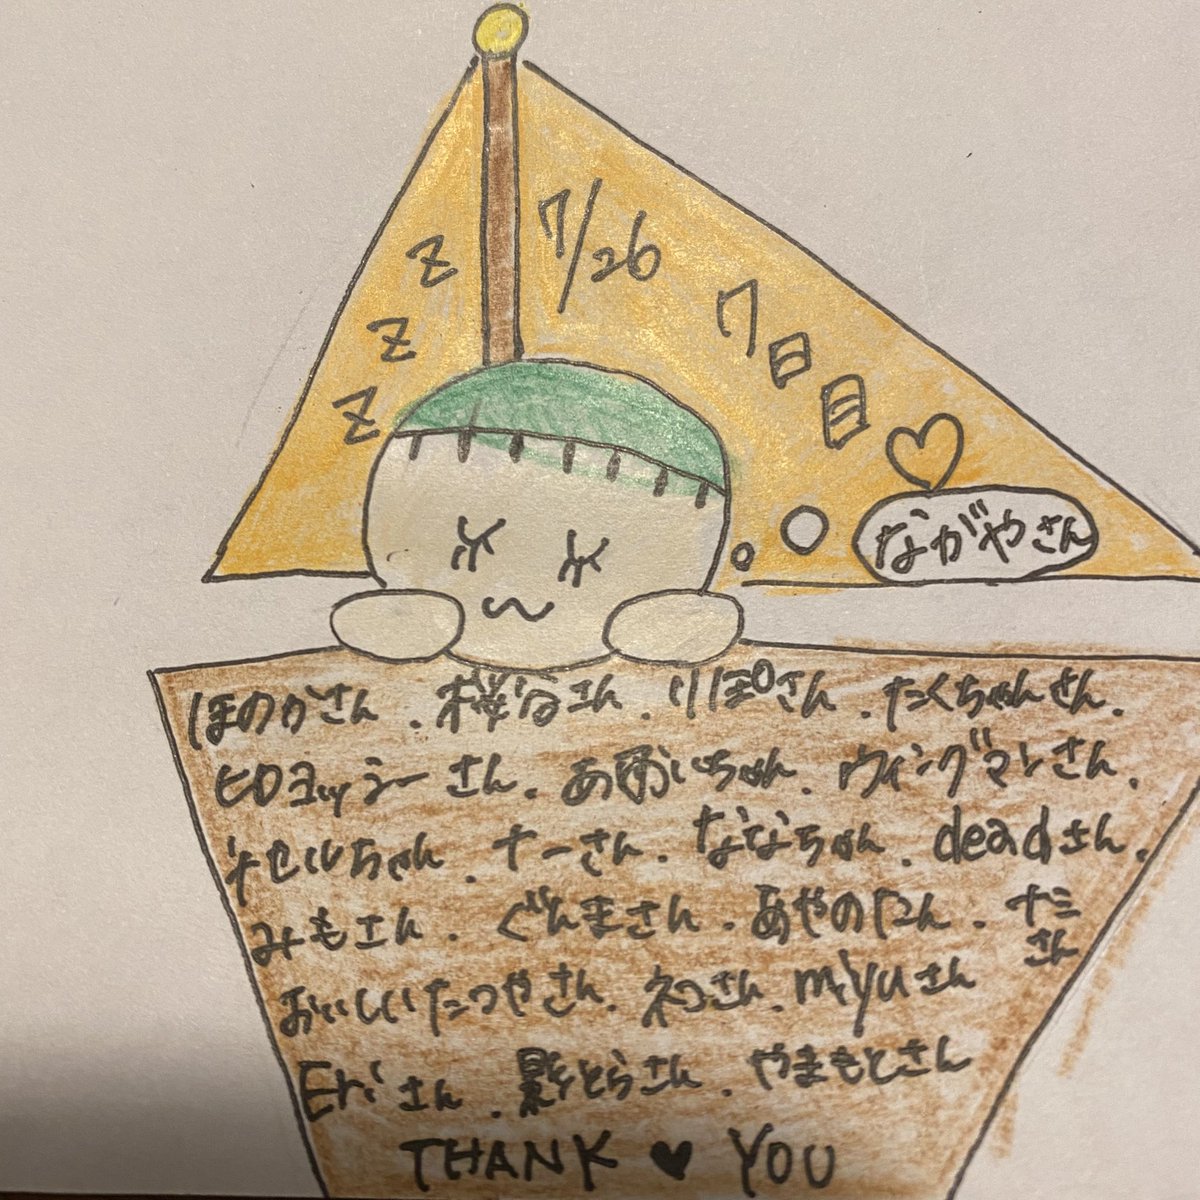 7/26
7日目
z
z
z
ながやさん
ほのかさん、桜谷さん、りぽさん、たくちゃんさん、
ヒロヨッシーさん、あおいちゃん、ウィングマンさん、
キセルちゃん、ナーさん、ななちゃん、deadさん、
みもさん、ぐんまさん、あやのたん、ナミさん
おいしいたつやさん、ネコさん、miyuさん
Eriさん、影とらさん、やまもとさん
THANK ♥ YOU